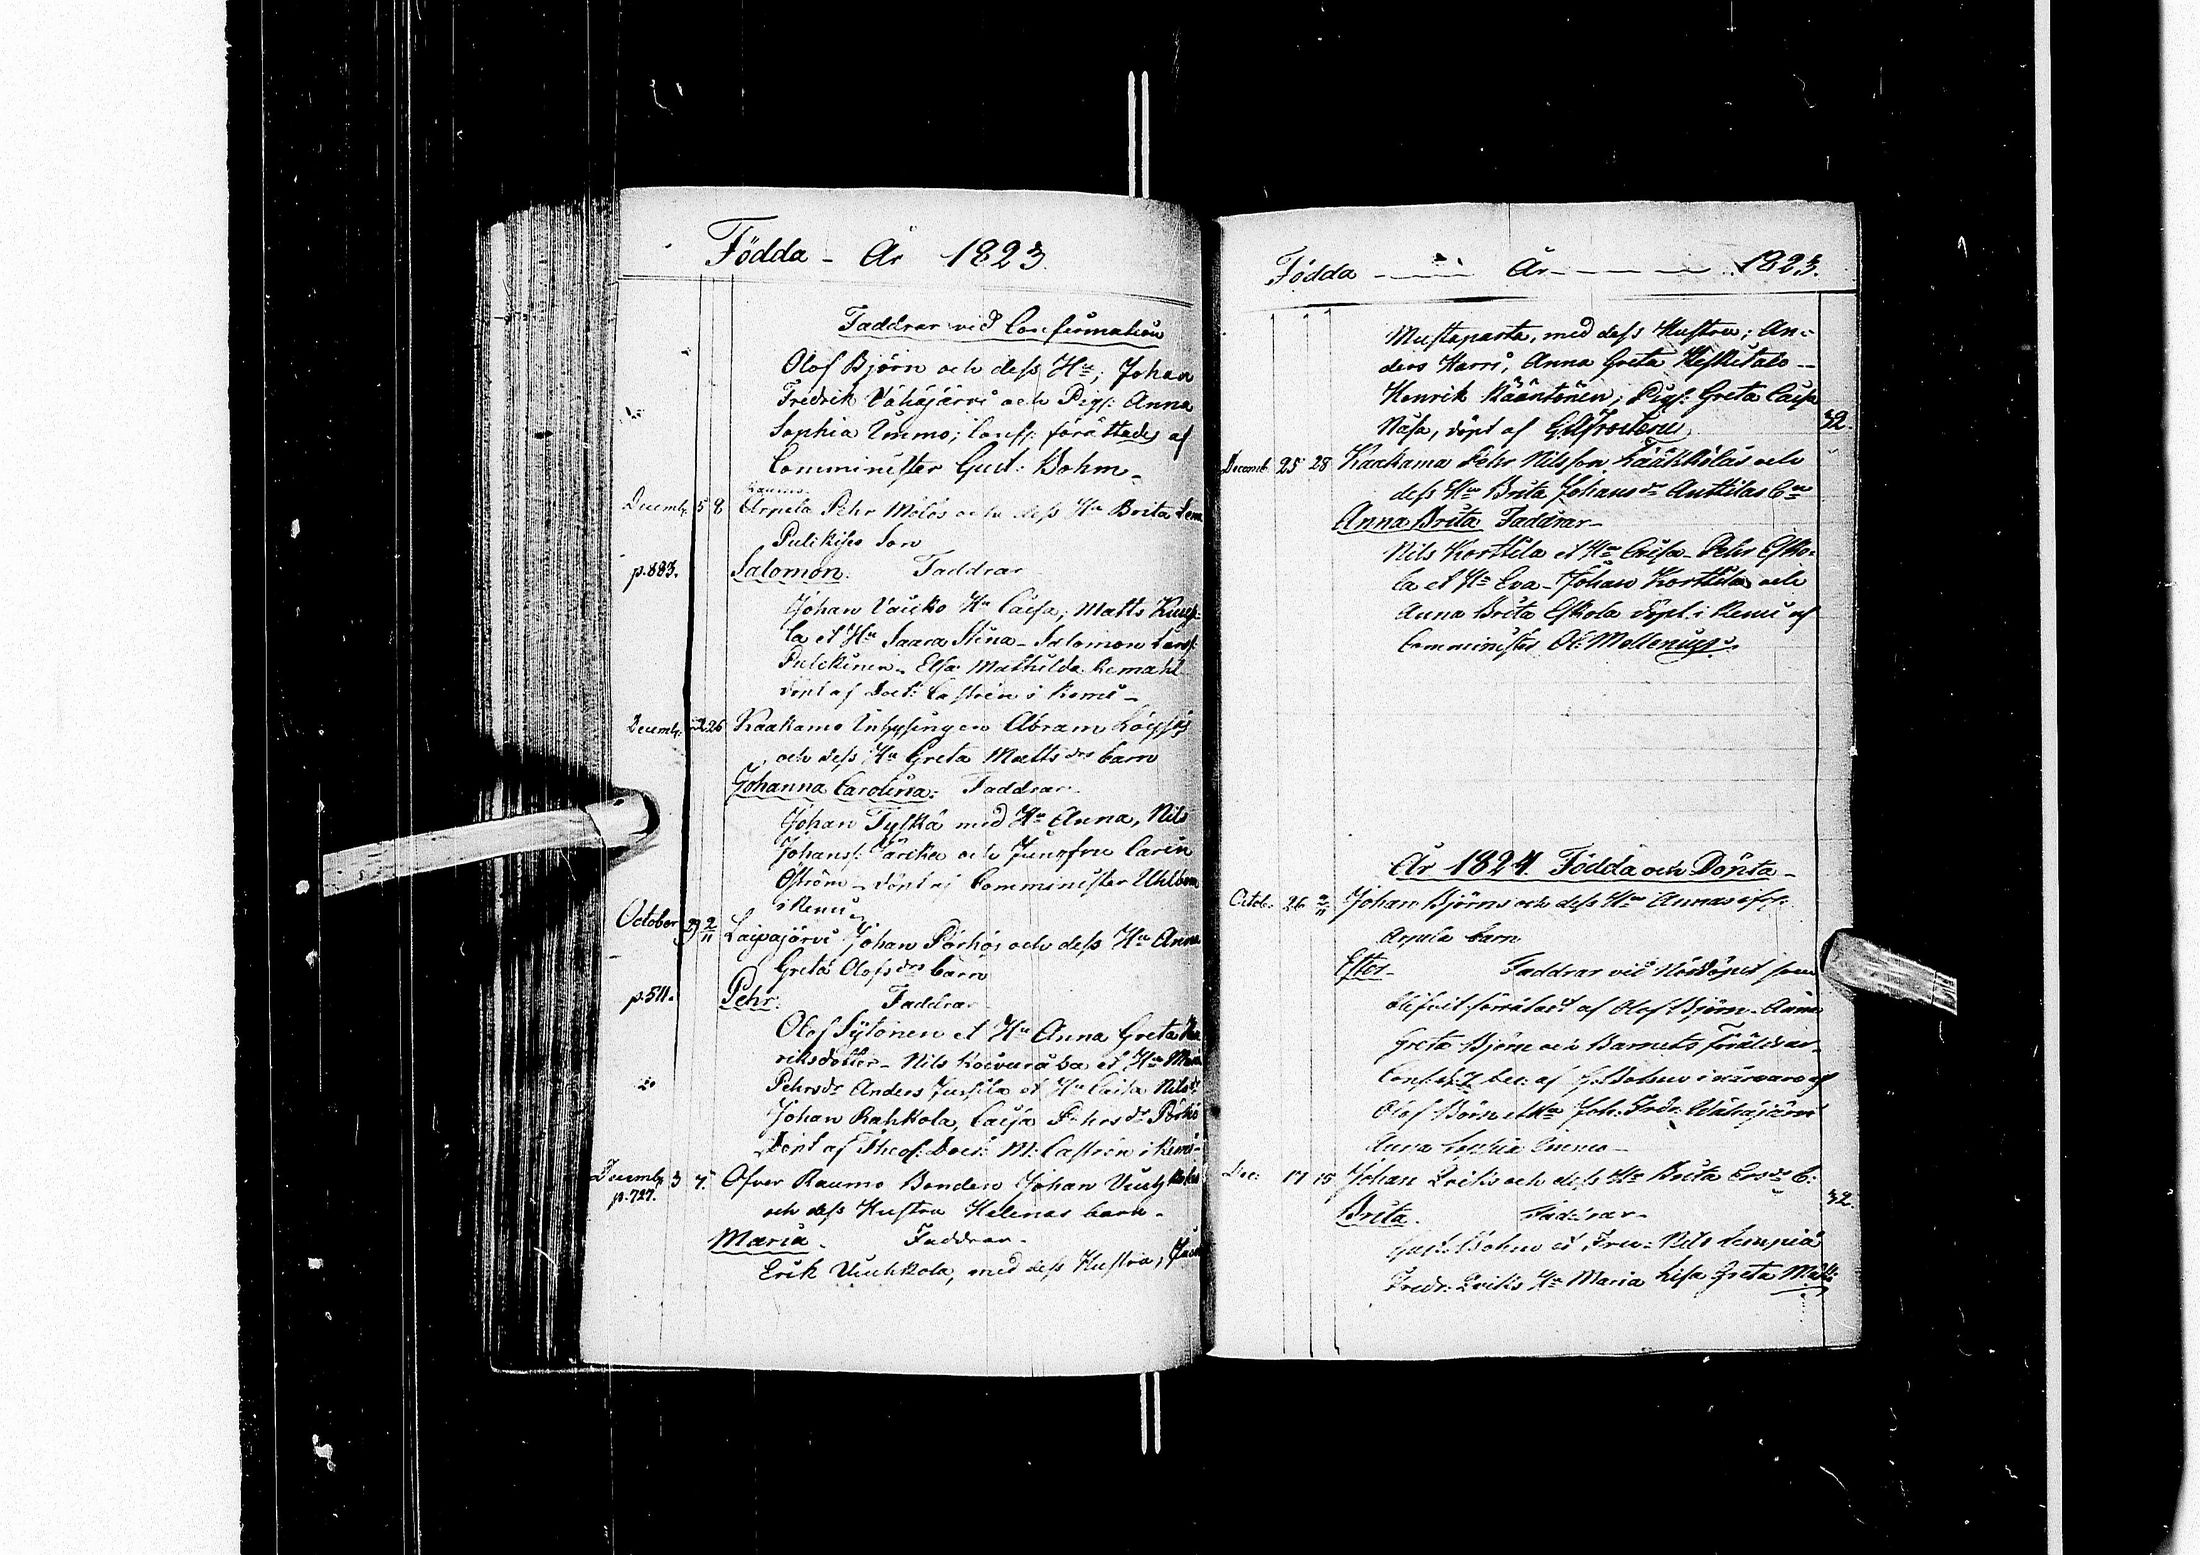 Födda - År 1823.
Faddrar vid Confirmation
Olof Björn och dess Hu; Johan
Fredrik Vähäjärvi och Pigs: Anna
Sophia Ummo; Conf: förättades af
Comminister Gust: Bohm -
Raumo
Decemb. 5 8 Arpela Pehr Mölös och dess Hu Brita
Pulikises Son
p.883. Salomon. Faddrar
Johan Vaicko Hu Caisa; Matts
la et Hu Saara Stina - Salomon Lars:
Pulckinen - Elsa Mathilda
döpt af Doct: Castrén i Kemi -
Decemb. 26 Kaakamo Inhysingen Abram
och dess Hu Greta Matts drs barn
Johanna Carolina: Faddrar
Johan Tyskä med Hu Anna, Nils
Johanss: och Jungfru Carin
Öström - döpt af Comminister Uhlbom
i Kemi
October 29 2/11 Laipajärvi Johan Pörhös och dess Hu Anna
Greta Olofs drs barn
p.511. Pehr. Faddrar
Olof Sytonen et Hu Anna Greta Hen
riksdotter - Nils Koivuranta et Hu Maria
Pehrsdr Anders Jussila et Hu Caisa Nilsdr
Johan Rahkola, Caisa Pehrsdr Pörhö
Döpt af Theol: Doct: M: Castrén i Kemi -
Decemb. 3 7. Öfver Raumo Bonden Johan
p.727. och dess Hustru Helenas barn -
Maria. Faddrar -
Erik Uuhkola, med dess Hustru,
Födda - År - 1823.
Mustaparta, med dess Hustru; An-
ders Harri, Anna Greta Keskitalo -
Henrik Kääntönen, Pigs: Greta Caisa
Nasa, döpt af G. A. Frosterus. 32.
Decemb. 25 28 Kaakama Pehr Nilsson och
dess Hu Brita Johansdr Anttilas bn
Anna Brita Faddrar -
Nils Korttila et Hu Caisa - Pehr Esko-
la et Hu Eva - Johan Korttila och
Anna Brita Eskola döpt i Kemi af
Comminister Ol: Mollerius.
År 1824. Födda och Döpta -
Octob. 26 2/11 Johan Björns och dess Hu Annas
Arpela barn
Ester - Faddrar vid Nöddopet som
blifvit förrättadt af Olof Björn - Anna
Greta Björn och Barnets Föräldrar -
Conf: af G. Bohm i närvaro af
Olof Björn et Hu Joh: Fredr: Vähäjärvi
Anna Sophia Ummo -
Dec: 15 Johan och dess Hu Brita b:
Brita. Faddrar - 32.
Gust: Bohm et Fru - Nils Lempiä
Fredr: Hu Maria Lisa Greta